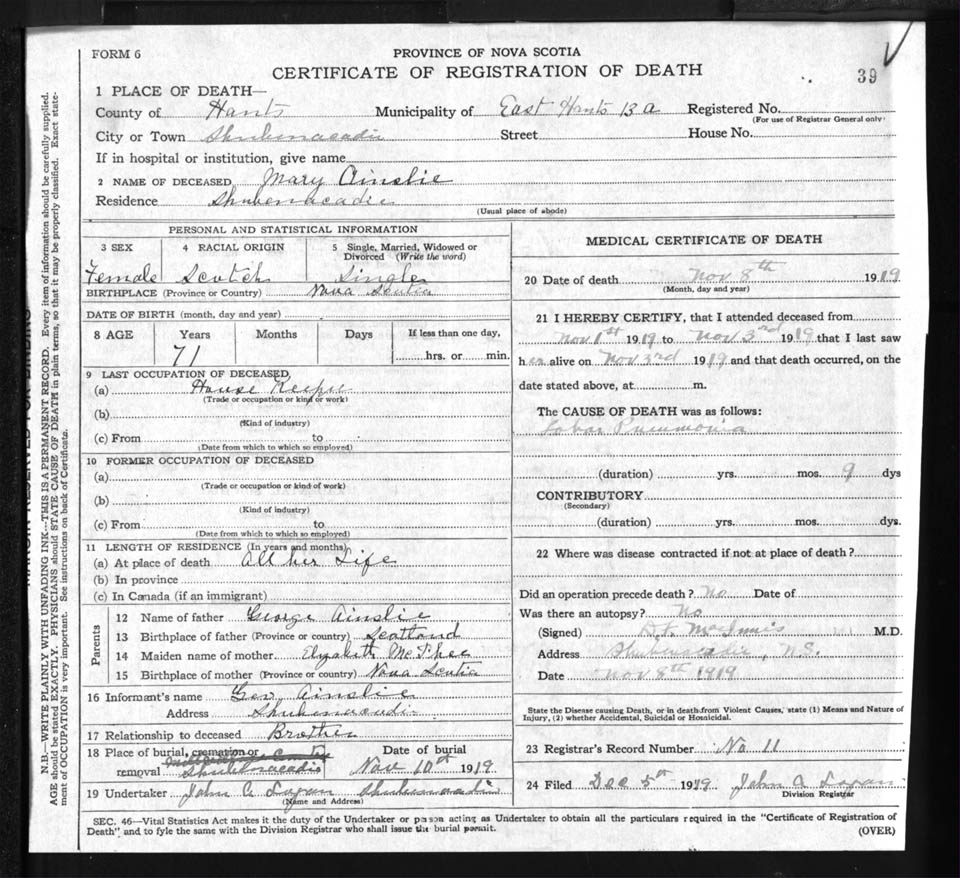 FORM 6
PROVINCE OF NOVA SCOTIA
CERTIFICATE OF REGISTRATION OF DEATH
39
1 PLACE OF DEATH—
County of Hants Municipality of East Hants 13 a Registered No.
(For use of Registrar General only)
City or Town Shubenacadie Street House No.
If in hospital or institution, give name
2 NAME OF DECEASED Mary Ainslie
Residence Shubenacadie
(Usual place of abode)
PERSONAL AND STATISTICAL INFORMATION
3 SEX 4 RACIAL ORIGIN 5 Single, Married, Widowed or
Divorced (Write the word)
Female Scotch Single
BIRTHPLACE (Province or Country) Nova Scotia
DATE OF BIRTH (month, day and year)
8 AGE Years Months Days If less than one day,
71 hrs. or min.
9 LAST OCCUPATION OF DECEASED,
(a) House Keeper
(Trade or occupation or kind of work)
(b)
(Kind of industry)
(c) From to
(Date from which to which so employed)
10 FORMER OCCUPATION OF DECEASED
(a)
(Trade or occupation or kind of work)
(b)
(Kind of industry)
(c) From to
(Date from which to which so employed)
11 LENGTH OF RESIDENCE (In years and months)
(a) At place of death All her Life
(b) In province
(c) In Canada (if an immigrant)
Parents
12 Name of father George Ainslie
13 Birthplace of father (Province or country) Scotland
14 Maiden name of mother Elizabeth McPhee
15 Birthplace of mother (Province or country) Nova Scotia
16 Informant's name Geo Ainslie
Address Shubenacadie
17 Relationship to deceased Brother
18 Place of burial, cremation or Date of burial
removal Shubenacadie Nov 10th 1919
19 Undertaker John A Logan Shubenacadie
(Name and Address)
MEDICAL CERTIFICATE OF DEATH
20 Date of death Nov 8th 1919
(Month, day and year)
21 I HEREBY CERTIFY, that I attended deceased from
Nov 1st 1919 to Nov 3rd 1919 that I last saw
her alive on Nov 3rd 1919 and that death occurred, on the
date stated above, at m.
The CAUSE OF DEATH was as follows:
Lobar Pnumonia
(duration) yrs. mos. 9 dys
CONTRIBUTORY
(Secondary)
(duration) yrs. mos. dys.
22 Where was disease contracted if not at place of death?
Did an operation precede death? No Date of
Was there an autopsy? No
(Signed) D.F. McInnis M.D.
Address Shubenacadie, N.S.
Date Nov 8th 1919
State the Disease causing Death, or in death from Violent Causes, state (1) Means and Nature of
Injury, (2) whether Accidental, Suicidal or Homicidal.
23 Registrar's Record Number No 11
24 Filed Dec 5th 1919 John A Logan
Division Registrar
SEC. 46—Vital Statistics Act makes it the duty of the Undertaker or person acting as Undertaker to obtain all the particulars required in the "Certificate of Registration of
Death" and to fyle the same with the Division Registrar who shall issue the burial permit.
(OVER)
N.B.—WRITE PLAINLY WITH UNFADING INK—THIS IS A PERMANENT RECORD. Every item of information should be carefully supplied.
AGE should be stated EXACTLY. PHYSICIANS should STATE CAUSE OF DEATH in plain terms, so that it may be properly classified. Exact state-
ment of OCCUPATION is very important. See instructions on back of Certificate.